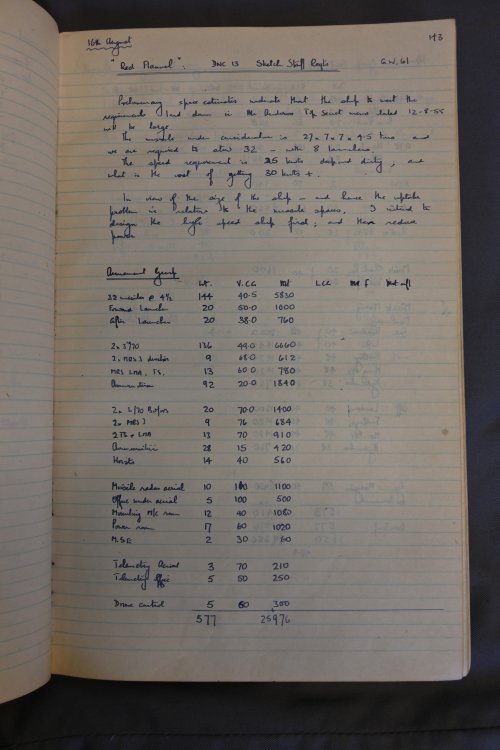 193
16th August
"Red Flannel". DNC 13 Sketch Staff Reqts G.W. 61
Preliminary space estimates indicate that the ship to meet the
requirements laid down in the Top Secret memo dated 12-8-55
will be large.
The missile under consideration is 27 x 7 x 7 x 4.5 tons and
we are required to stow 32 - with 8 launchers.
The speed requirement is 25 knots deep and dirty, and
what is the cost of getting 30 knots +.
In view of the size of the ship - and hence the uptake
problem in relation to the missile spaces, I intend to
design the high speed ship first, and then reduce
power
Armament Group
Wt. V.CG Mt LCG Mt F Mt aft
32 missiles @ 4½ 144 40.5 5830
Forward Launcher 20 50.0 1000
After Launcher 20 38.0 760
2 x 3"/70 136 49.0 6660
2 x MRS 3 directors 9 68.0 612
MRS LMA, TS. 13 60.0 780
Ammunition 92 20.0 1840
2 x L/70 Bofors 20 70.0 1400
2 x MRS 3 9 76 684
2 TS + LMA 13 70 910
Ammunition 28 15 420
Hoists 14 40 560
Missile radar aerial 10 110 1100
Office under aerial 5 100 500
Mounting M/c room 12 90 1080
Power room 17 60 1020
M.SE 2 30 60
Telemetry Aerial 3 70 210
Telemetry office 5 50 250
Drone control 5 60 300
577 25976